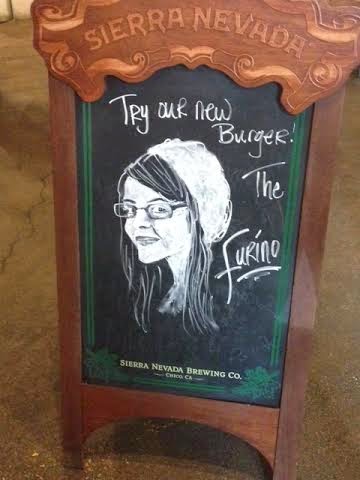 SIERRA NEVADA
Try our new
Burger!
The
Furino
SIERRA NEVADA BREWING CO.
CHICO, CA